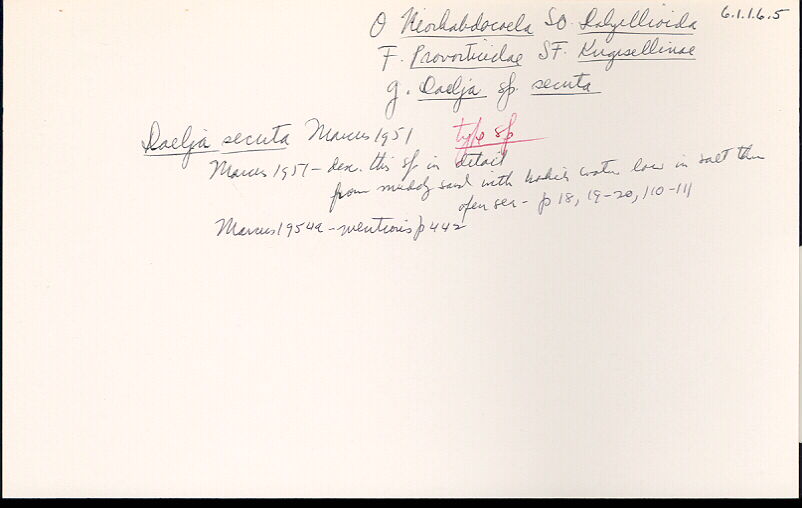 O Neorhabdocoela SO. Dalyellioida 6.1.1.6.5
F. Provorticidae SF. Kirgisellinae
g. Daelja sp. secuta
Daelja secuta Marcus 1951 type sp
Marcus 1951 - desc. this sp in detail
from muddy sand with water low in salt than
open sea - p 18, 19-20, 110-111
Marcus 1954a - mentions p 442